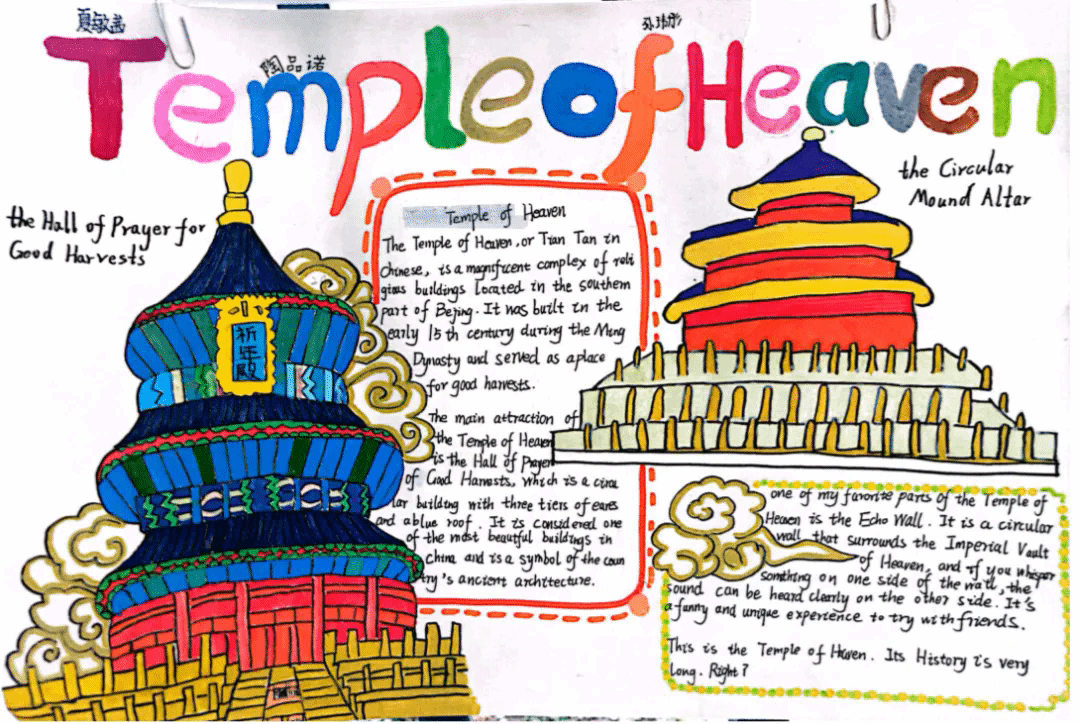 陶品诺
Temple of Heaven
the Hall of Prayer for
Good Harvests
祈年殿
Temple of Heaven
The Temple of Heaven, or Tian Tan in
Chinese, is a magnificent complex of reli
gious buildings located in the southern
part of Bejing. It was built in the
early 15th century during the Ming
Dynasty and served as aplace
for good harvests.
The main attraction of
the Temple of Heaven
is the Hall of Prayer
of Good Harvests, which is a circu
lar building with three tiers of eaves
and a blue roof. It is considered one
of the most beautful buildings in
china and is a symbol of the coun
try's ancient architecture.
the Circular
Mound Altar
one of my favorite parts of the Temple of
Heaven is the Echo Wall. It is a circular
wall that surrounds the Imperial Vault
of Heaven, and if you whisper
somthing on one side of the wall, the
sound can be heard clearly on the other side. It's
a funny and unique experience to try with friends.
This is the Temple of Heaven. Its History is very
long. Right?